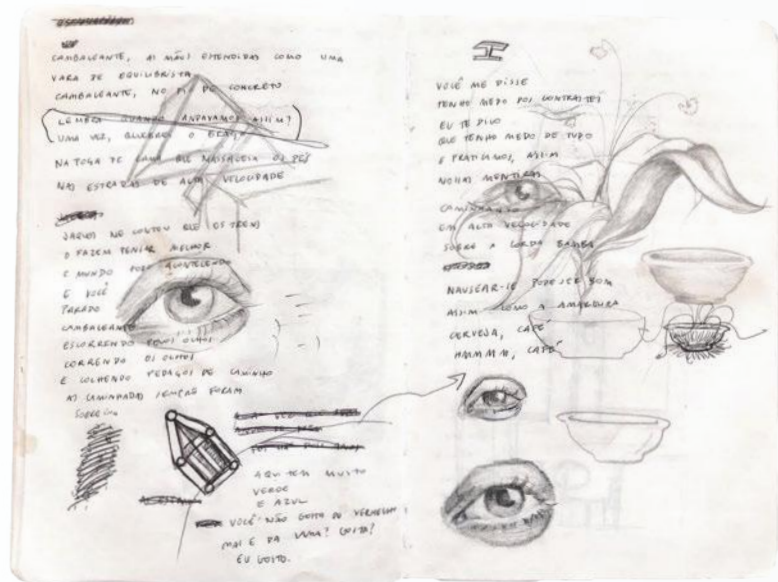 CAMBALEANTE, AS MÃOS ESTENDIDAS COMO UMA
VARA DE EQUILIBRISTA
CAMBALEANTE, NO DE CONCRETO
LEMBRA QUANDO ANDAVAMOS ASSIM?
UMA VEZ, QUEBREI O BRAÇO
NA TOGA DE QUE OS PÉS
NAS ESTRADAS DE ALTA VELOCIDADE
JAQUES ME CONTOU QUE OS TRENS
O FAZEM PENSAR MELHOR
O MUNDO ACONTECENDO
E VOCÊ
PARADO
CAMBALEANTE
ESCORRENDO PELOS OLHOS
CORRENDO OS OLHOS
E COLHENDO PEDAÇOS DE CAMINHO
AS CAMINHADAS SEMPRE FORAM
SOBRE
AQUI TEM MUITO
VERDE
E AZUL
VOCÊ NÃO GOSTA DO VERMELHO
MAS E DA UVA? GOSTA?
EU GOSTO.
I
VOCÊ ME DISSE
TENHO MEDO DOS CONTRASTES
EU TE DIGO
QUE TENHO MEDO DE TUDO
E PRATICAMOS, ASSIM
NOSSAS MENTIRAS
CAMINHANDO
EM ALTA VELOCIDADE
SOBRE A CORDA BAMBA
NAUSEAR-SE PODE SER BOM
ASSIM COMO A AMARGURA
CERVEJA, CAFÉ
HMMMM, CAFÉ